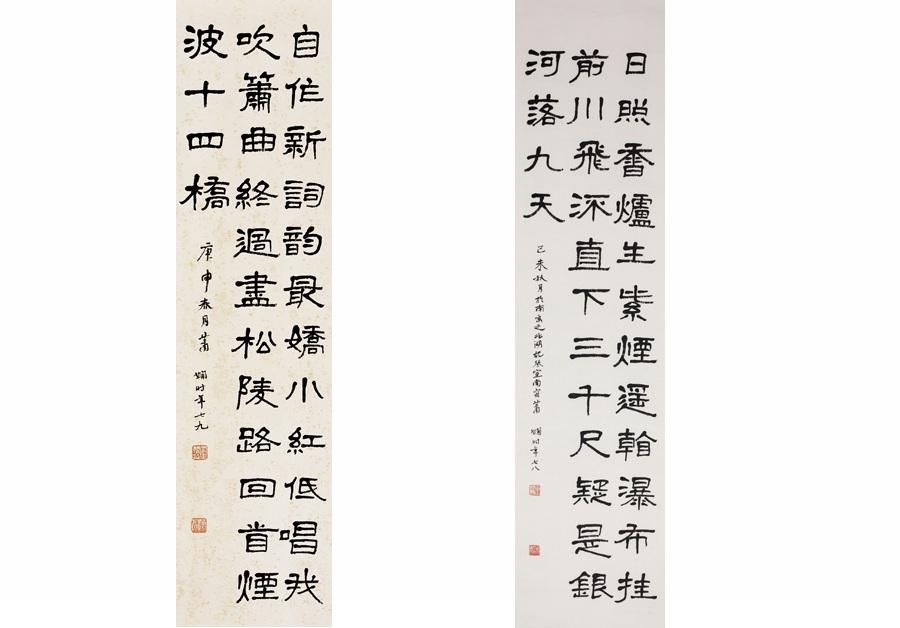 自作新詞韵最嬌小紅低唱我
吹簫曲終過盡松陵路回首煙
波十四橋
庚申春月萧娴时年七九
日照香爐生紫煙遥看瀑布挂
前川飛流直下三千尺疑是銀
河落九天
己未秋月於南京之 萧娴时年七八